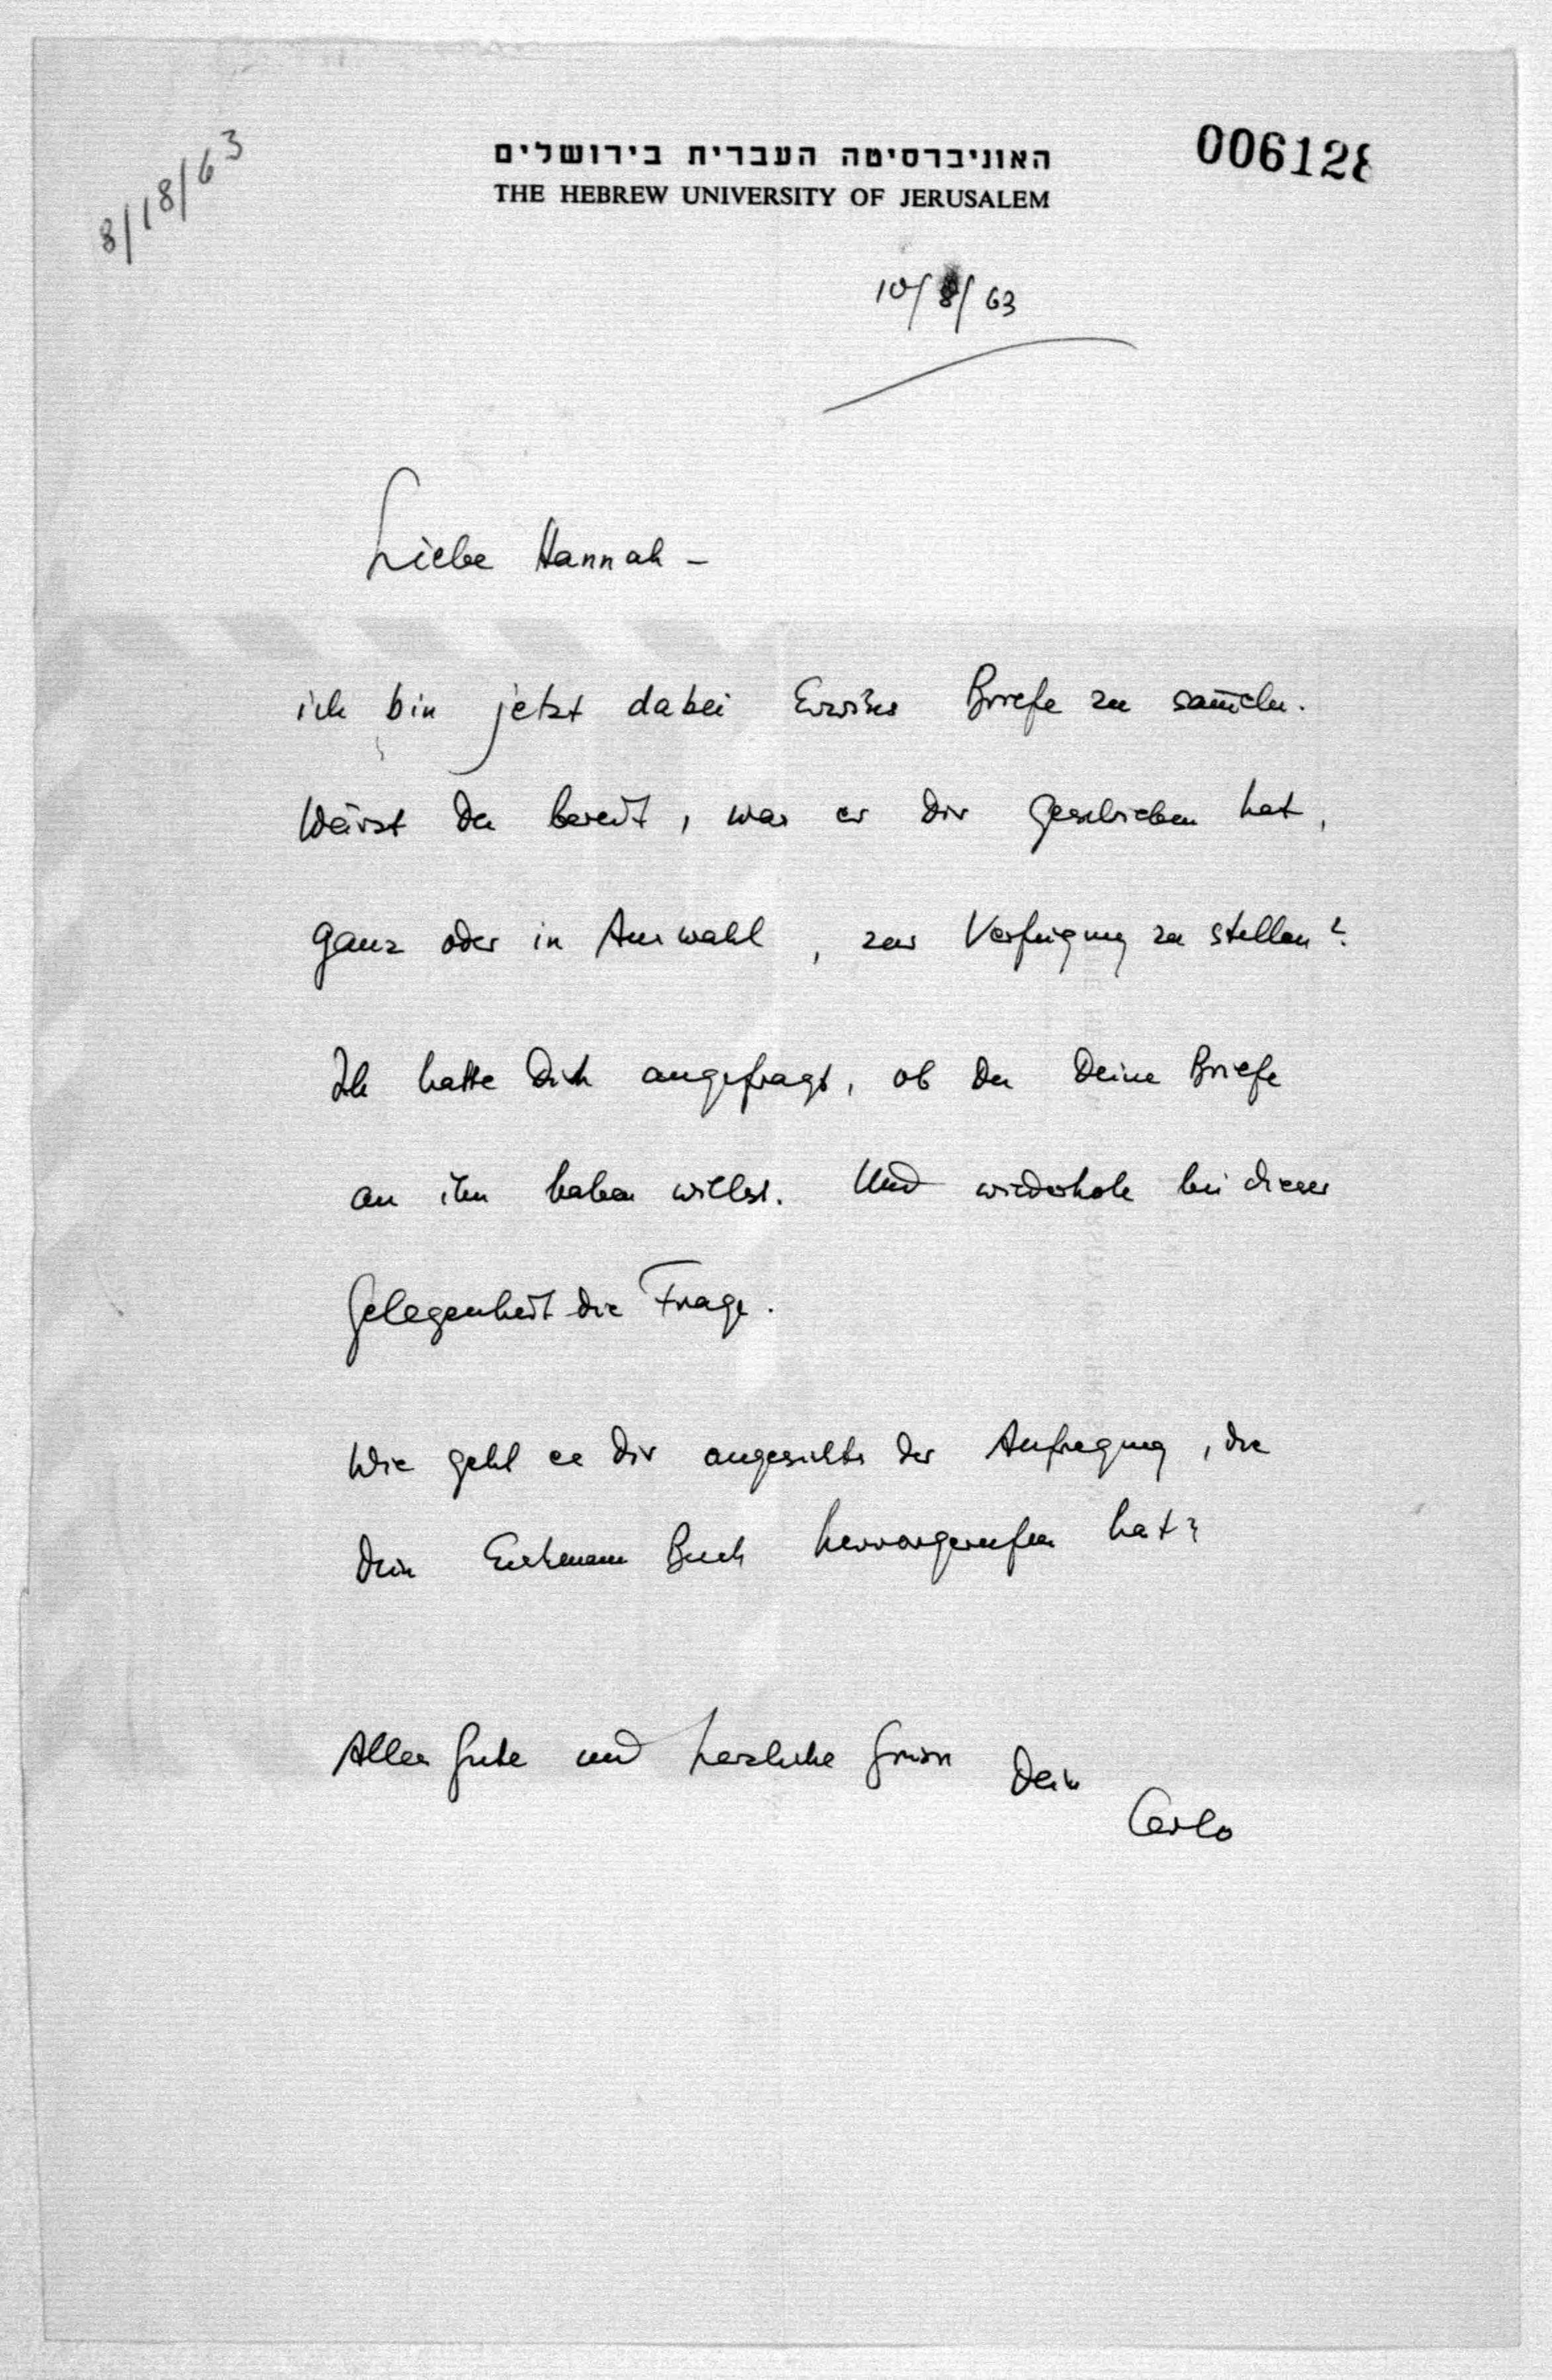 8/18/63
האוניברסיטה העברית בירושלים
THE HEBREW UNIVERSITY OF JERUSALEM
006128
10/8/63
Liebe Hannah –
ich bin jetzt dabei Erwins Briefe zu sam̄eln.
Wärst Du bereit, was er Dir geschrieben hat,
ganz oder in Auswahl, zur Verfügung zu stellen?
Ich hatte Dich angefragt, ob Du Deine Briefe
an ihn haben willst. Und wiederhole bei dieser
Gelegenheit die Frage.
Wie geht es Dir angesichts der Aufregung, die
Dein Eichmann Buch hervorgerufen hat?
Alles Gute und herzliche Grüsse Dein
Carlo